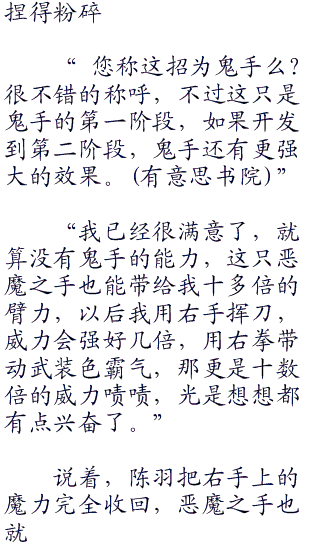 捏得粉碎
“ 您称这招为鬼手么?
很不错的称呼，不过这只是
鬼手的第一阶段，如果开发
到第二阶段，鬼手还有更强
大的效果。(有意思书院)”
“我已经很满意了，就
算没有鬼手的能力，这只恶
魔之手也能带给我十多倍的
臂力，以后我用右手挥刀，
威力会强好几倍，用右拳带
动武装色霸气，那更是十数
倍的威力啧啧，光是想想都
有点兴奋了。”
说着，陈羽把右手上的
魔力完全收回，恶魔之手也
就